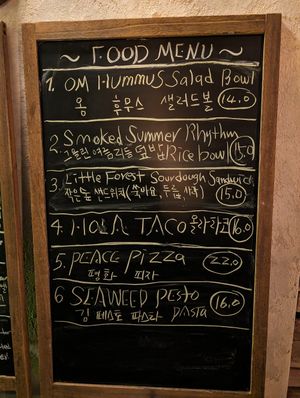 ~ FOOD MENU ~
1. OM HUMMUS Salad Bowl
옴 후무스 샐러드볼 14.0
2. Smoked Summer Rhythm
그을린 여름리듬 덮밥 Rice bowl 15.0
3. Little Forest Sourdough Sandwich
작은숲 샌드위치 (쑥아요, 두릅, 사과) 15.0
4. HOLA TACO 올라타코 16.0
5. PEACE PIZZA 22.0
평화 피자
6 SEAWEED Pesto 16.0
김 페스토 파스타 PASTA